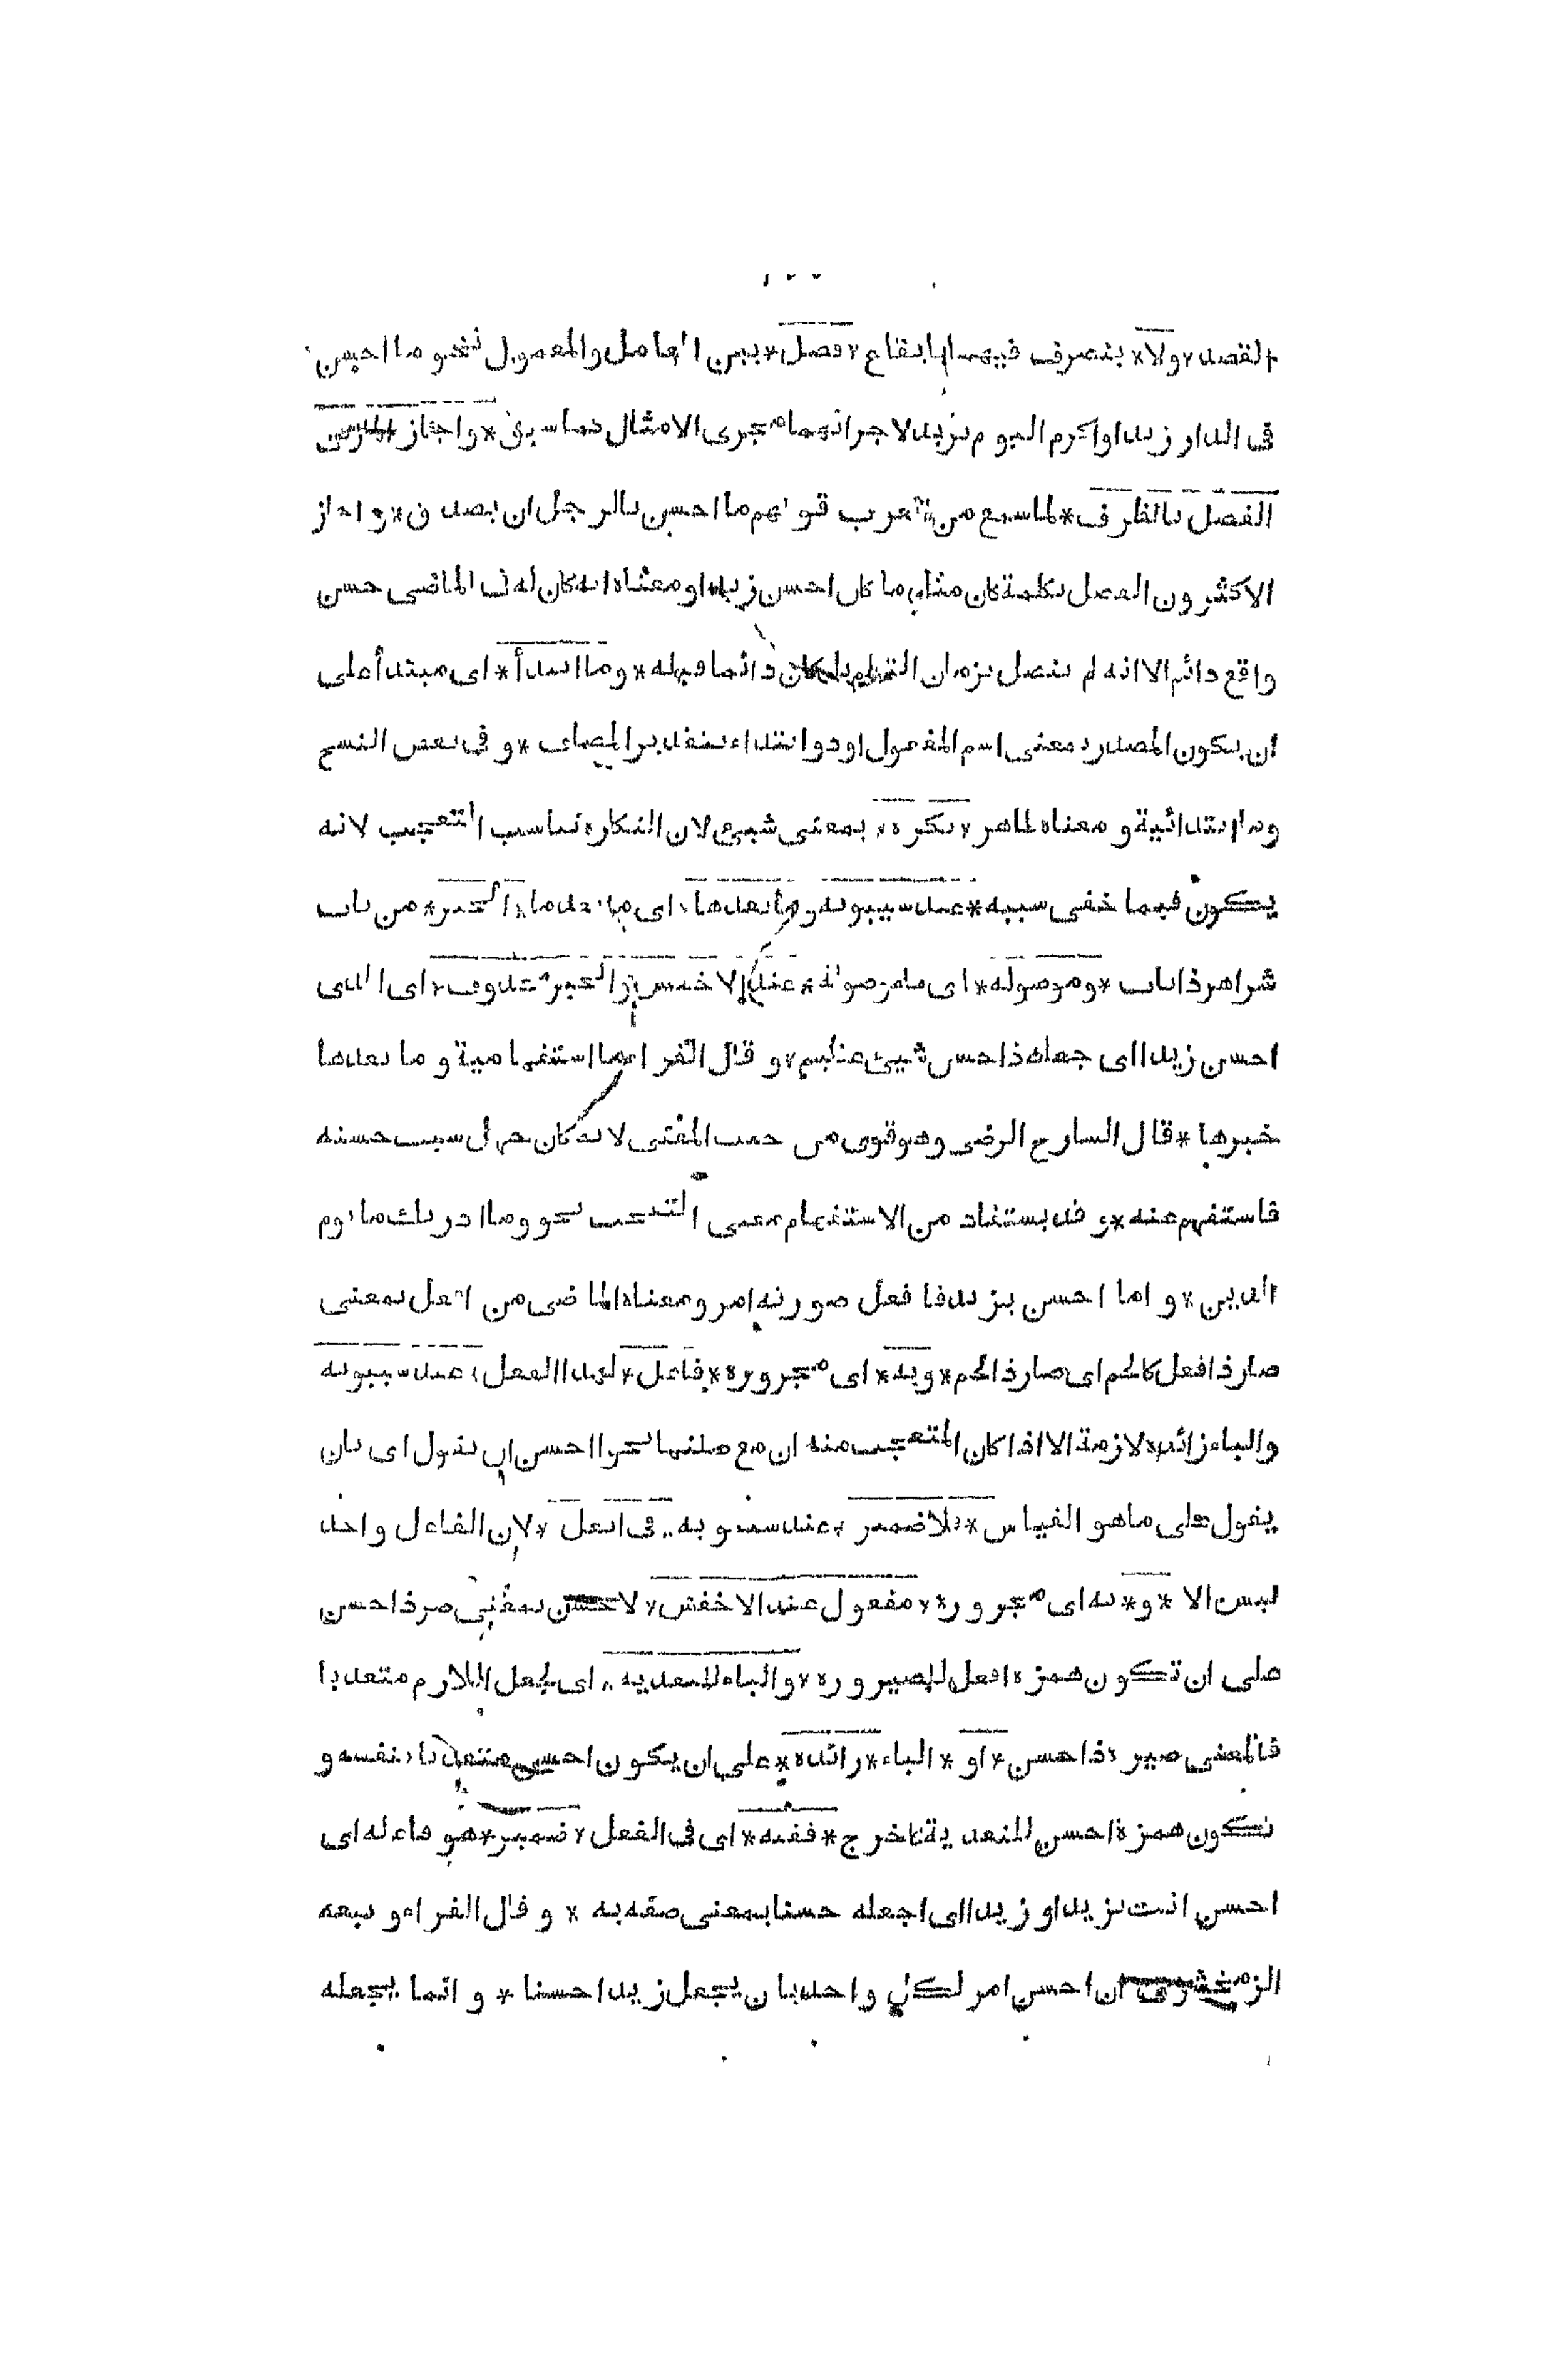 القصد * ولا * يتصرف فيهما بايقاع * فصل * بين العامل والمعمول نحو ما احسن
فى الدار زيدا واكرم اليوم بزيد لاجرائهما مجرى الامثال كما سبق * واجاز المازنى
الفصل بالظرف * لما سمع من العرب قولهم ما احسن بالرجل ان يصدق * واجاز
الاكثرون الفصل بكلمة كان مثل ما كان احسن زيدا ومعناه انه كان له فى الماضى حسن
واقع دائم الا انه لم يتصل بزمان التكلم بل كان دائما قبله * وما ابتدأ * اى مبتدأ على
ان يكون المصدر بمعنى اسم المفعول او ذو ابتداء بتقدير المضاف * و فى بعض النسخ
وما ابتدائية و معناه ظاهر * نكرة * بمعنى شيئ لان النكارة تناسب التعجب لانه
يكون فيما خفى سببه * عند سيبويه وما بعدها * اى ما بعد ما * الخبر * من باب
شر اهر ذا ناب * وموصولة * اى ما موصولة * عند الاخفش والخبر محذوف * اى الذى
احسن زيدا اى جعله ذا حسن شيئ عظيم * و قال الفراء ما استفهامية و ما بعدها
خبرها * قال الشارح الرضى وهو قوى من حيث المعنى لانه كان جهل سبب حسنه
فاستفهم عنه * و قد يستفاد من الاستفهام معنى التعجب نحو وما ادريك ما يوم
الدين * و اما احسن بزيد فافعل صورته امر ومعناه الماضى من افعل بمعنى
صار ذا فعل كالحم اى صار ذا لحم * وبه * اى مجروره * فاعل * لهذا الفعل * عند سيبويه
والباء زائدة لازمة الا اذا كان المتعجب منه ان مع صلتها نحو احسن ان يقول اى بان
يقول على ما هو القياس * فلا ضمير * عند سيبويه * فى افعل * لان الفاعل واحد
ليس الا * و * به اى مجروره * مفعول عند الاخفش * لاحسن بمعنى صر ذا حسن
على ان تكون همزة افعل للصيرورة * والباء للتعدية * اى لجعل اللازم متعديا
فالمعنى صيره ذا حسن * او * الباء * زائدة * على ان يكون احسن متعديا بنفسه و
تكون همزة احسن للتعدية كاخرج * ففيه * اى فى الفعل * ضمير * هو فاعله اى
احسن انت بزيد او زيدا اى اجعله حسنا بمعنى صفه به * و قال الفراء و تبعه
الزمخشرى ان احسن امر لكل واحد بان يجعل زيدا حسنا * و انما يجعله